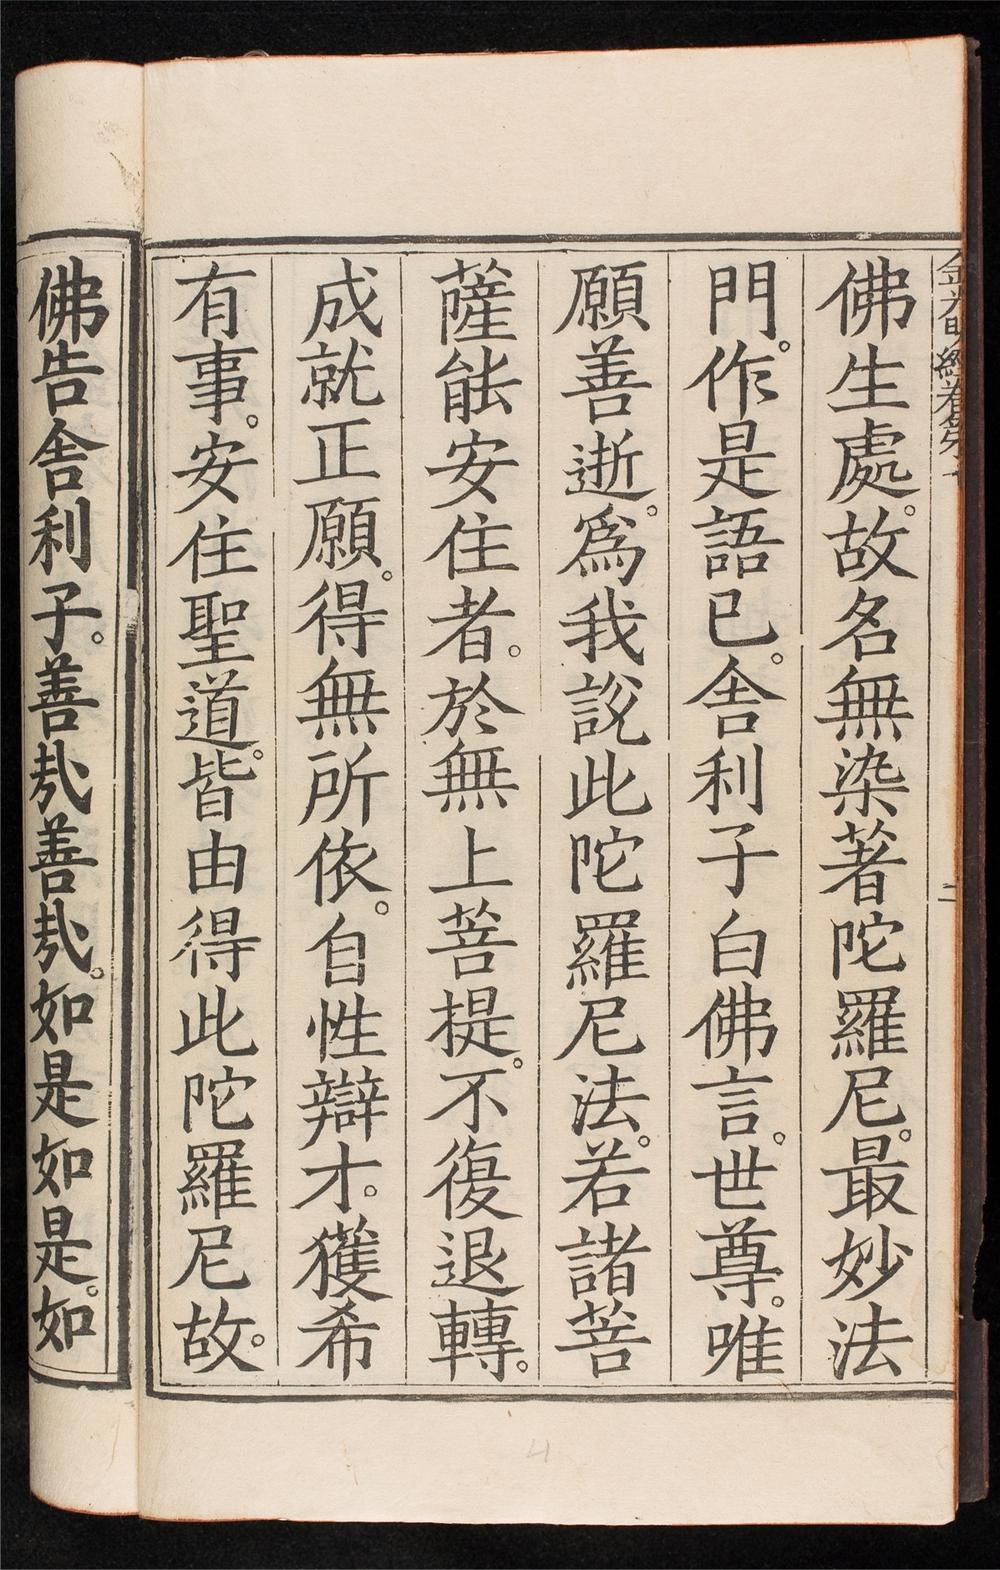 佛生處。故名無染著陀羅尼。最妙法
門。作是語已。舍利子白佛言。世尊。唯
願善逝。爲我說此陀羅尼法。若諸菩
薩能安住者。於無上菩提。不復退轉。
成就正願。得無所依。自性辯才。獲希
有事。安住聖道。皆由得此陀羅尼故。
佛告舍利子。善哉善哉。如是如是。如